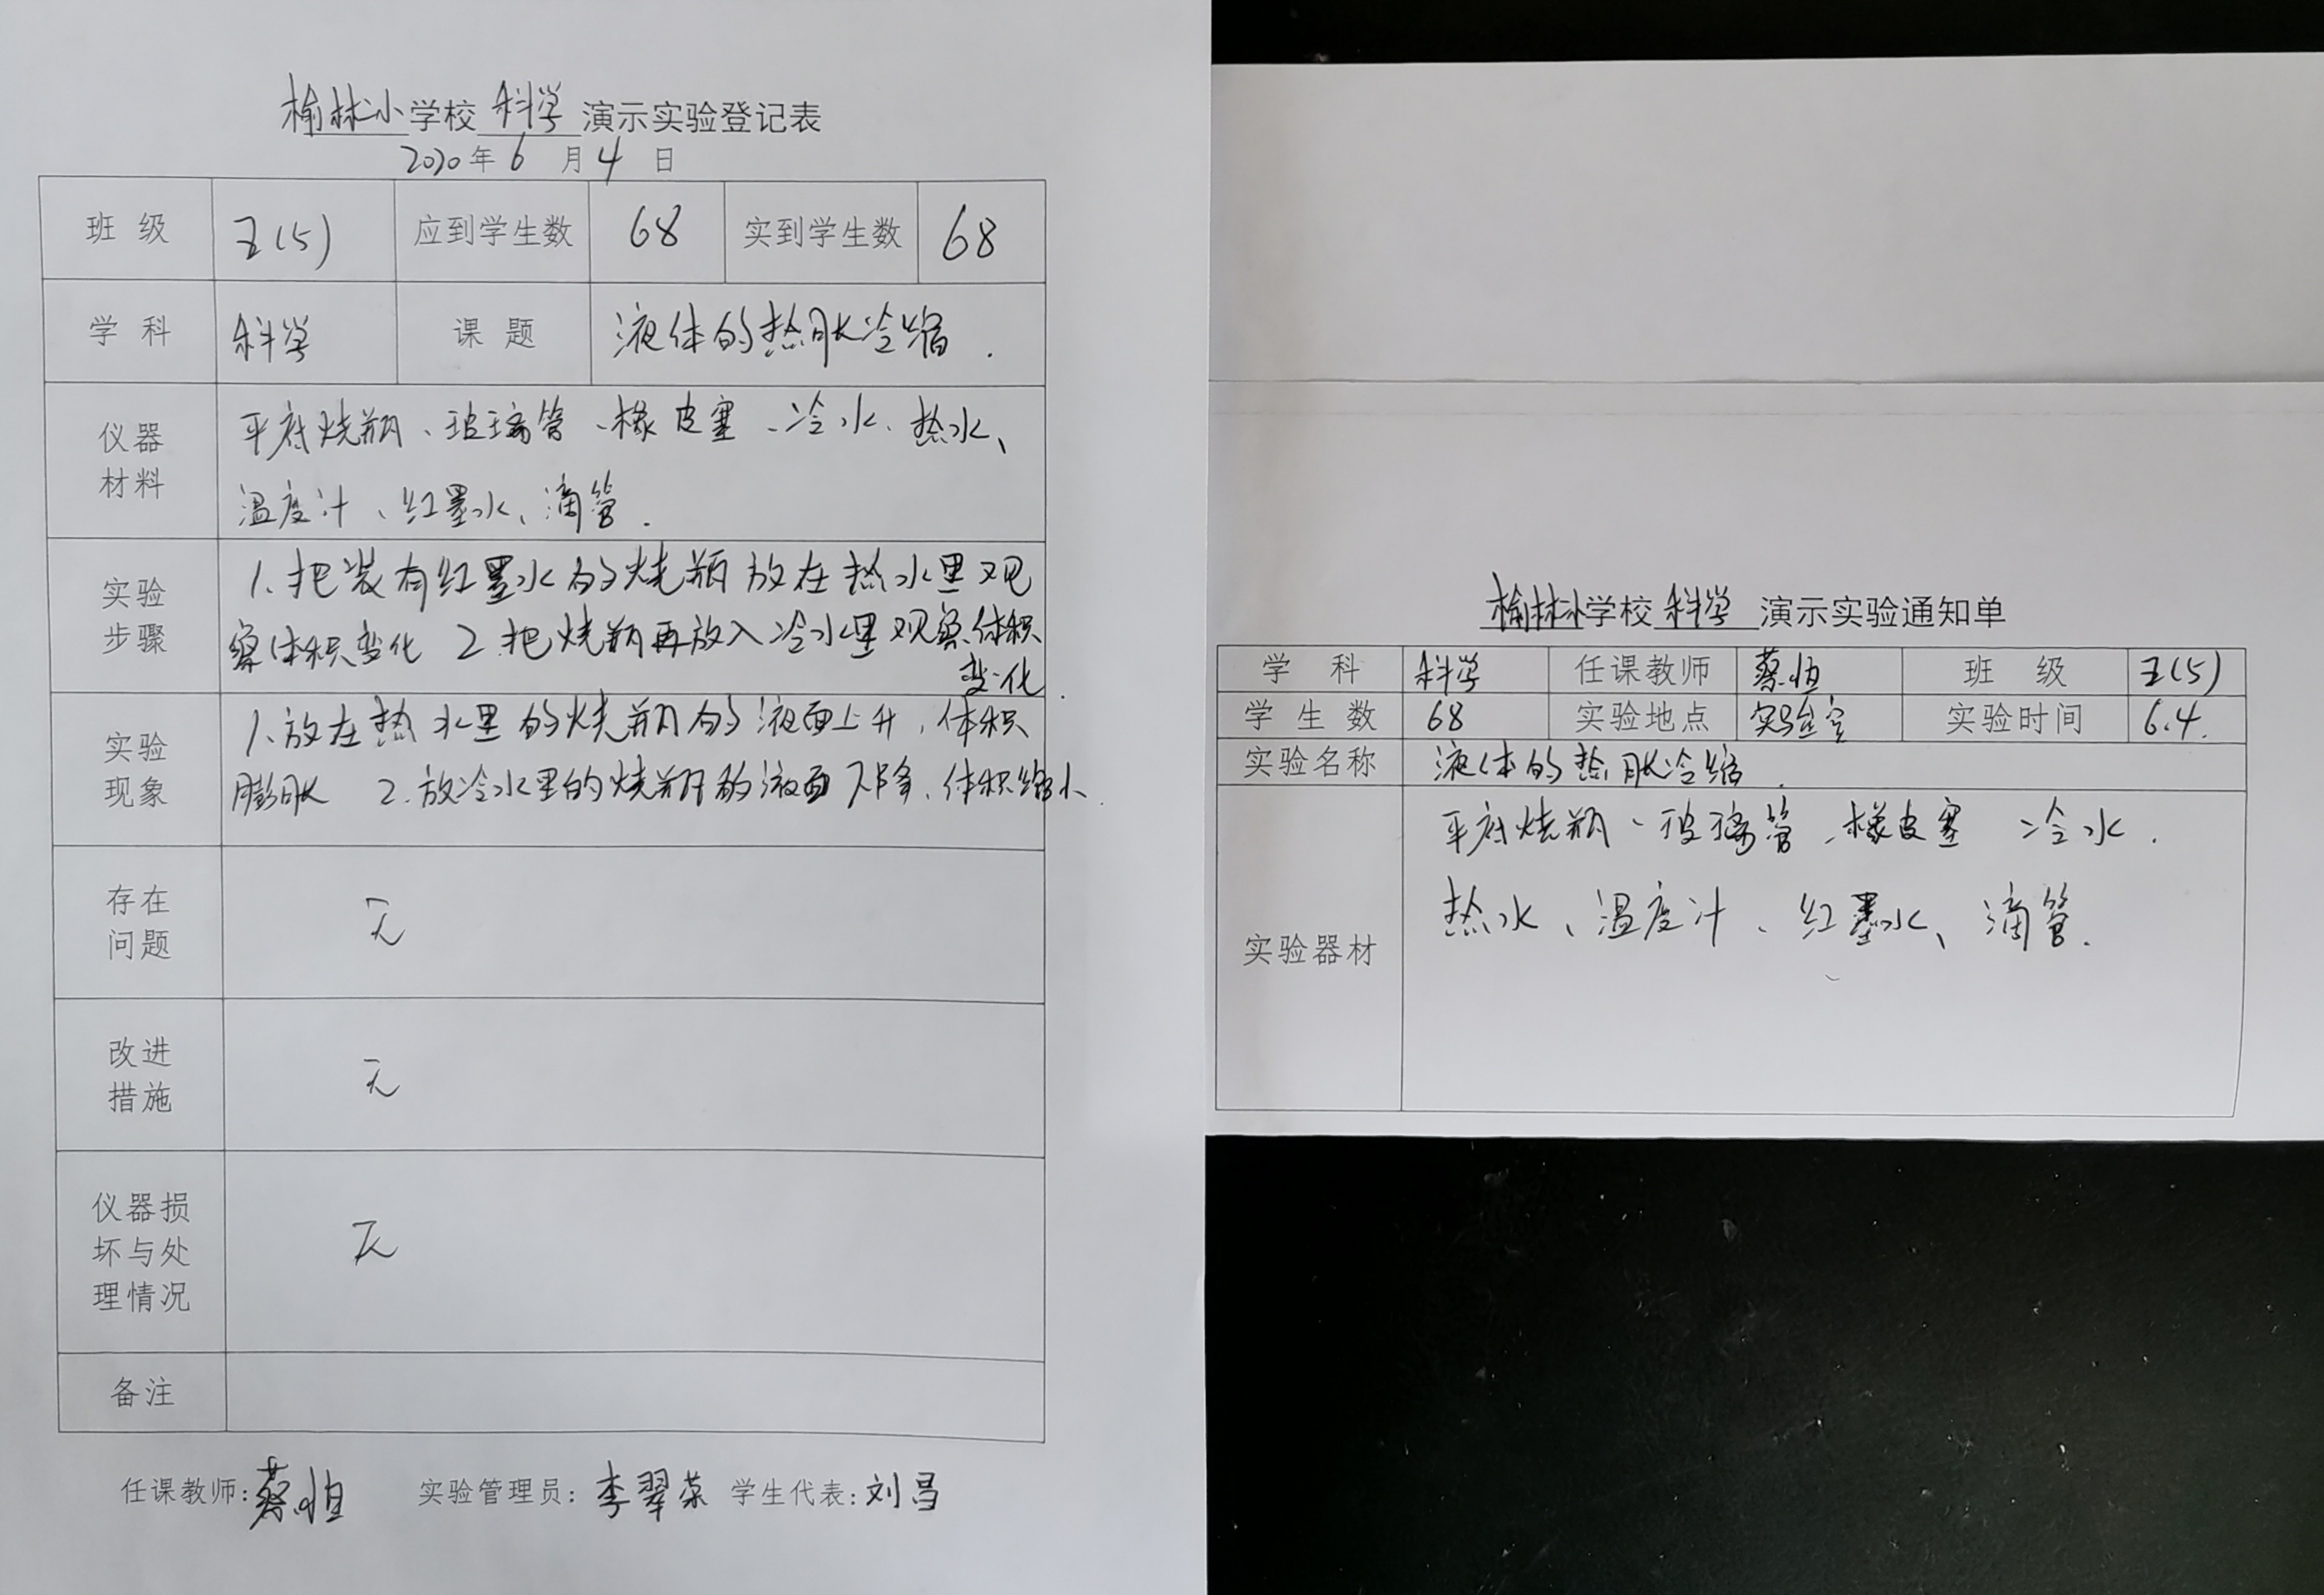 榆林小学校 科学 演示实验登记表
2020年6月4日
班级 五(5) 应到学生数 68 实到学生数 68
学科 科学 课题 液体的热胀冷缩.
仪器
材料
平底烧瓶、玻璃管、橡皮塞、冷水、热水、
温度计、红墨水、滴管.
实验
步骤
1.把装有红墨水的烧瓶放在热水里观
察体积变化 2.把烧瓶再放入冷水里观察体积
变化.
实验
现象
1.放在热水里的烧瓶的液面上升,体积
膨胀 2.放冷水里的烧瓶的液面下降,体积缩小.
存在
问题
无
改进
措施
无
仪器损
坏与处
理情况
无
备注
任课教师:蔡恒 实验管理员:李翠荣 学生代表:刘昌
榆林小学校 科学 演示实验通知单
学科 科学 任课教师 蔡恒 班级 五(5)
学生数 68 实验地点 实验室 实验时间 6.4.
实验名称 液体的热胀冷缩.
实验器材
平底烧瓶、玻璃管、橡皮塞 冷水.
热水、温度计、红墨水、滴管.